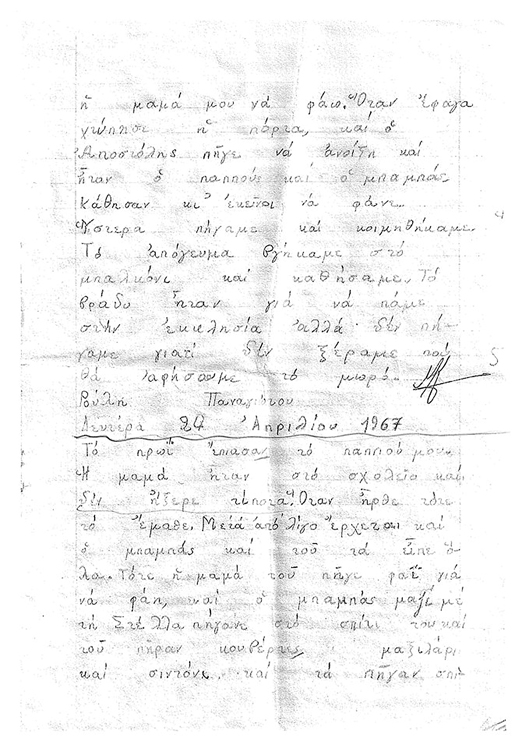 ἡ μαμά μου νά φάω. Ὅταν ἔφαγα
χτύπησε ἡ πόρτα, καί ὁ
Ἀποστόλης πῆγε νά ἀνοίξη καί
ἦταν ὁ παππούς καί ὁ μπαμπάς
Κάθησαν κι' ἐκεῖνοι νά φᾶνε.
Ὕστερα πήγαμε καί κοιμηθήκαμε.
Τό ἀπόγευμα βγήκαμε στό
μπαλκόνι καί καθήσαμε. Τό
βράδυ ἦταν γιά νά πᾶμε
στήν ἐκκλησία ἀλλά δέν πή-
γαμε γιατί δέν ξέραμε πού
θά ἀφήσουμε τό μωρό.
5
Ρούλη Παναγιώτου
Δευτέρα 24 Ἀπριλίου 1967
Τό πρωί ἔπιασαν τό παππού μου.
Ἡ μαμά ἦταν στό σχολεῖο καί
δέν ἤξερε τίποτα. Ὅταν ἦρθε τότε
τό ἔμαθε. Μετά ἀπό λίγο ἔρχεται καί
ὁ μπαμπάς καί τοῦ τά εἶπε ὅ-
λα. Τότε ἡ μαμά τοῦ πῆγε φαΐ γιά
νά φάη, καί ὁ μπαμπάς μαζί μέ
τή Στέλλα πήγανε στό σπίτι του καί
τοῦ πῆραν κουβέρτες, μαξιλάρι
καί σιντόνι καί τά πῆγαν στή